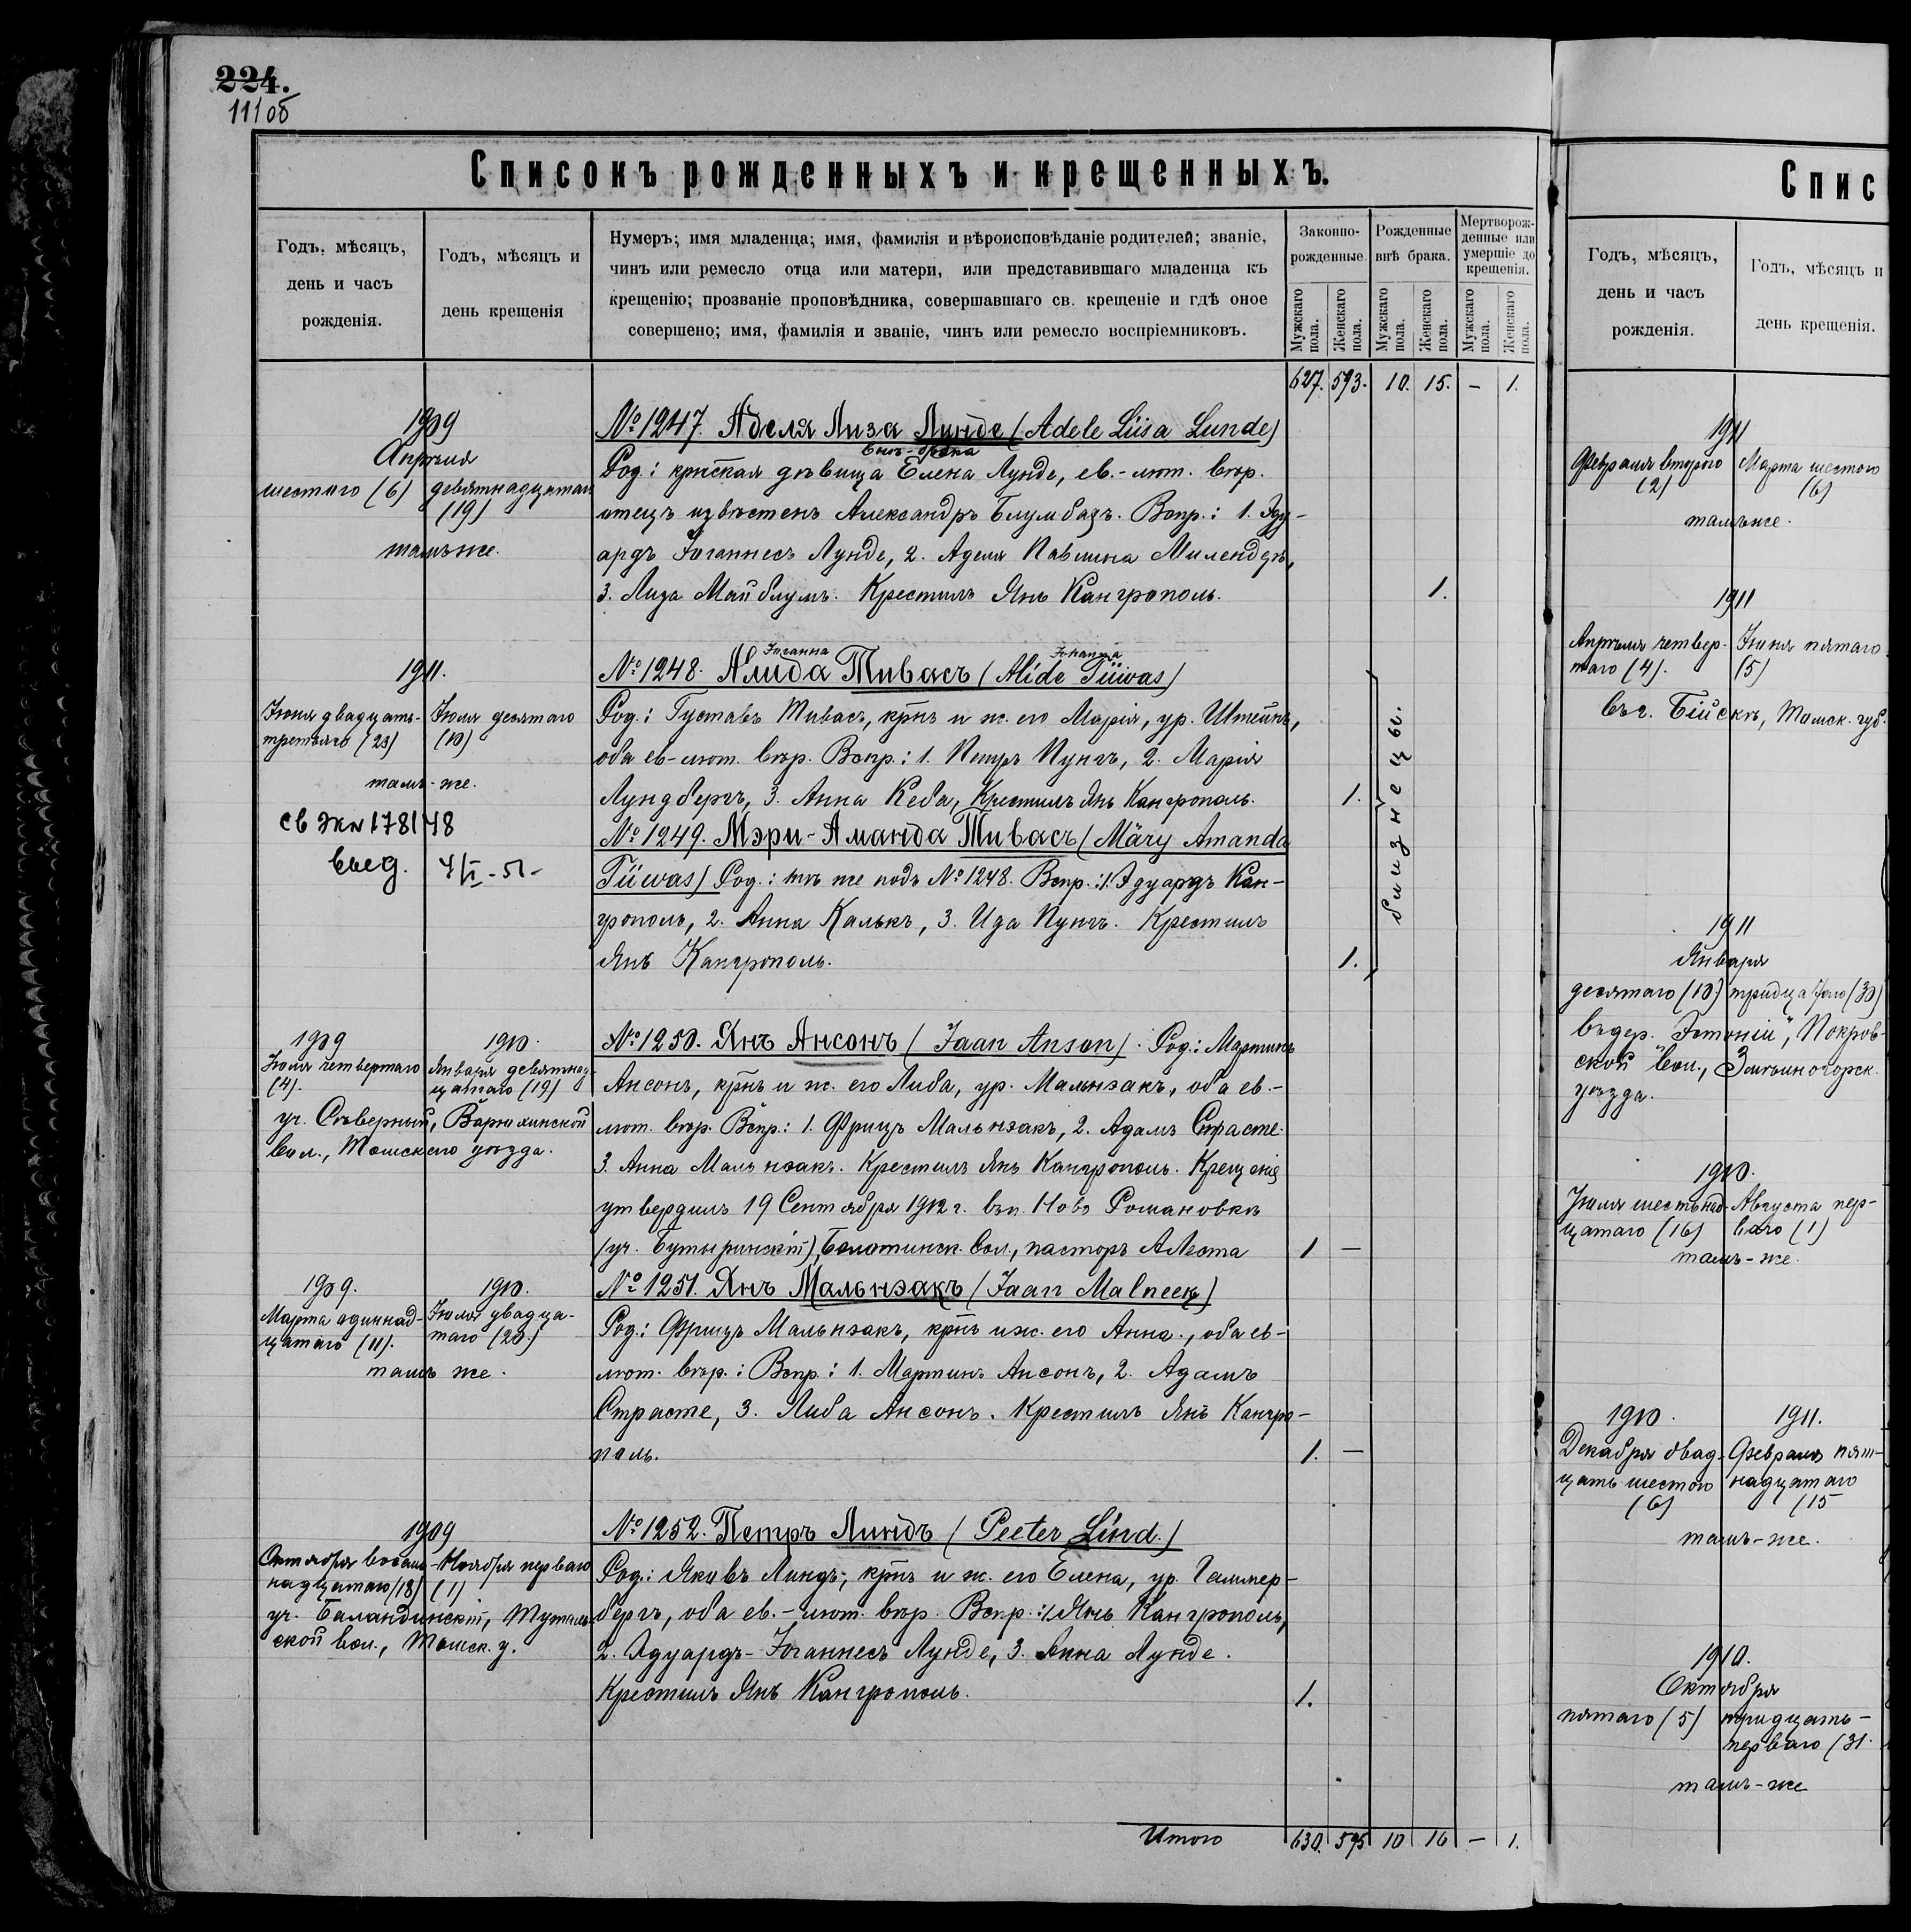 224.
111об
Списокъ рожденныхъ и крещенныхъ.
Годъ, мѣсяцъ, день и часъ рожденія.
Годъ, мѣсяцъ и день крещенія
Нумеръ; имя младенца; имя, фамилія и вѣроисповѣданіе родителей; званіе,
чинъ или ремесло отца или матери, или представившаго младенца къ
крещенію; прозваніе проповѣдника, совершавшаго св. крещеніе и гдѣ оное
совершено; имя, фамилія и званіе, чинъ или ремесло воспріемниковъ.
Законно-рожденные
Рожденные внѣ брака.
Мертворож-денные или умершіе до крещенія.
Мужскаго пола.
Женскаго пола.
Мужскаго пола.
Женскаго пола.
Мужскаго пола.
Женскаго пола.
627. 593. 10. 15. — 1.
1909
Апрѣля
шестаго (6) девятнадцатаго
(19)
тамъ же.
№ 1247. Аделя Лиза Лунде (Adele Liisa Lunde)
внѣ-брака
Род.: крнская дѣвица Елена Лунде, ев.-лют. вѣр.
отецъ извѣстенъ Александръ Блумбахъ. Вспр.: 1. Эду-
ардъ Іоганнесъ Лунде, 2. Аделя Павлина Милендеръ,
3. Лиза Майблумъ. Крестилъ Янъ Кангрополь.
1.
1911.
Іюня двадцать- Іюля десятаго
третьяго (23) (10)
тамъ-же.
св эки 178148
выд. 4/I-51-
Іоганна Johanna
№ 1248. Алида Тивасъ (Alide Tiiwas)
Род.: Густавъ Тивасъ, крнъ и ж. его Марія, ур. Штейнъ,
оба ев-лют. вѣр. Вспр.: 1. Петръ Пунгъ, 2. Марія
Лундбергъ, 3. Анна Кеба, Крестилъ Янъ Кангрополь.
1.
близнецы.
№ 1249. Мэри-Аманда Тивасъ (Märy Amanda
Tiiwas) Род.: тѣ же подъ № 1248. Вспр.: 1. Эдуардъ Кан-
грополь, 2. Анна Калькъ, 3. Ида Пунгъ. Крестилъ
Янъ Кангрополь.
1.
1909 1910.
Іюля четвертаго Января девятнад-
(4). цатаго (19)
уч. Сѣверный, Варюхинской
вол., Томскаго уѣзда.
№ 1250. Янъ Ансонъ (Jaan Anson). Род.: Мартинъ
Ансонъ, крнъ и ж. его Либа, ур. Мальнэакъ, оба ев.-
лют. вѣр. Вспр.: 1. Фрицъ Мальнэакъ, 2. Адамъ Страсте.
3. Анна Мальнэакъ. Крестилъ Янъ Кангрополь. Крещеніе
утвердилъ 19 Сентября 1912 г. въ п. Ново Романовкѣ
(уч. Бутыринскій), Болотинск. вол., пасторъ А Леста
1 —
1909. 1910.
Марта одиннад- Іюля двадца-
цатаго (11). таго (20.)
тамъ же.
№ 1251. Янъ Мальнэакъ (Jaan Malneek)
Род.: Фрицъ Мальнэакъ, крнъ и ж. его Анна., оба ев-
лют. вѣр.: Вспр.: 1. Мартинъ Ансонъ, 2. Адамъ
Страсте, 3. Либа Ансонъ. Крестилъ Янъ Кангро-
поль.
1. —
1909
Октября восем- Ноября перваго
надцатаго (18) (1)
уч. Баландинскій, Туталь-
ской вол., Томск. у.
№ 1252. Петръ Линдъ (Peeter Lind.)
Род.: Яковъ Линдъ, крнъ и ж. его Елена, ур. Гаммер-
бергъ, оба ев.-лют. вѣр. Вспр.: 1. Янъ Кангрополь,
2. Эдуардъ-Іоганнесъ Лунде, 3. Анна Лунде.
Крестилъ Янъ Кангрополь.
1.
Итого 630. 595 10 16 — 1.
Спис
Годъ, мѣсяцъ, день и часъ рожденія.
Годъ, мѣсяцъ и день крещенія.
1911
Февраля второго Марта шестого
(2) (6)
тамъ же.
1911
Апрѣля четвер- Іюня пятаго
таго (4). (5)
въ г. Бійскѣ, Томск. губ.
1911
Января
десятаго (10) тридцатаго (30)
въ дер. "Эстоніи", Покров-
ской вол., Змѣиногорск.
уѣзда.
1910.
Іюля шестьнад- Августа пер-
цатаго (16) ваго (1)
тамъ-же.
1910. 1911.
Декабря двад- Февраля пят-
цать шестого надцатаго
(6) (15
тамъ-же.
1910.
Октября
пятаго (5) тридцать-
перваго (31.
тамъ-же